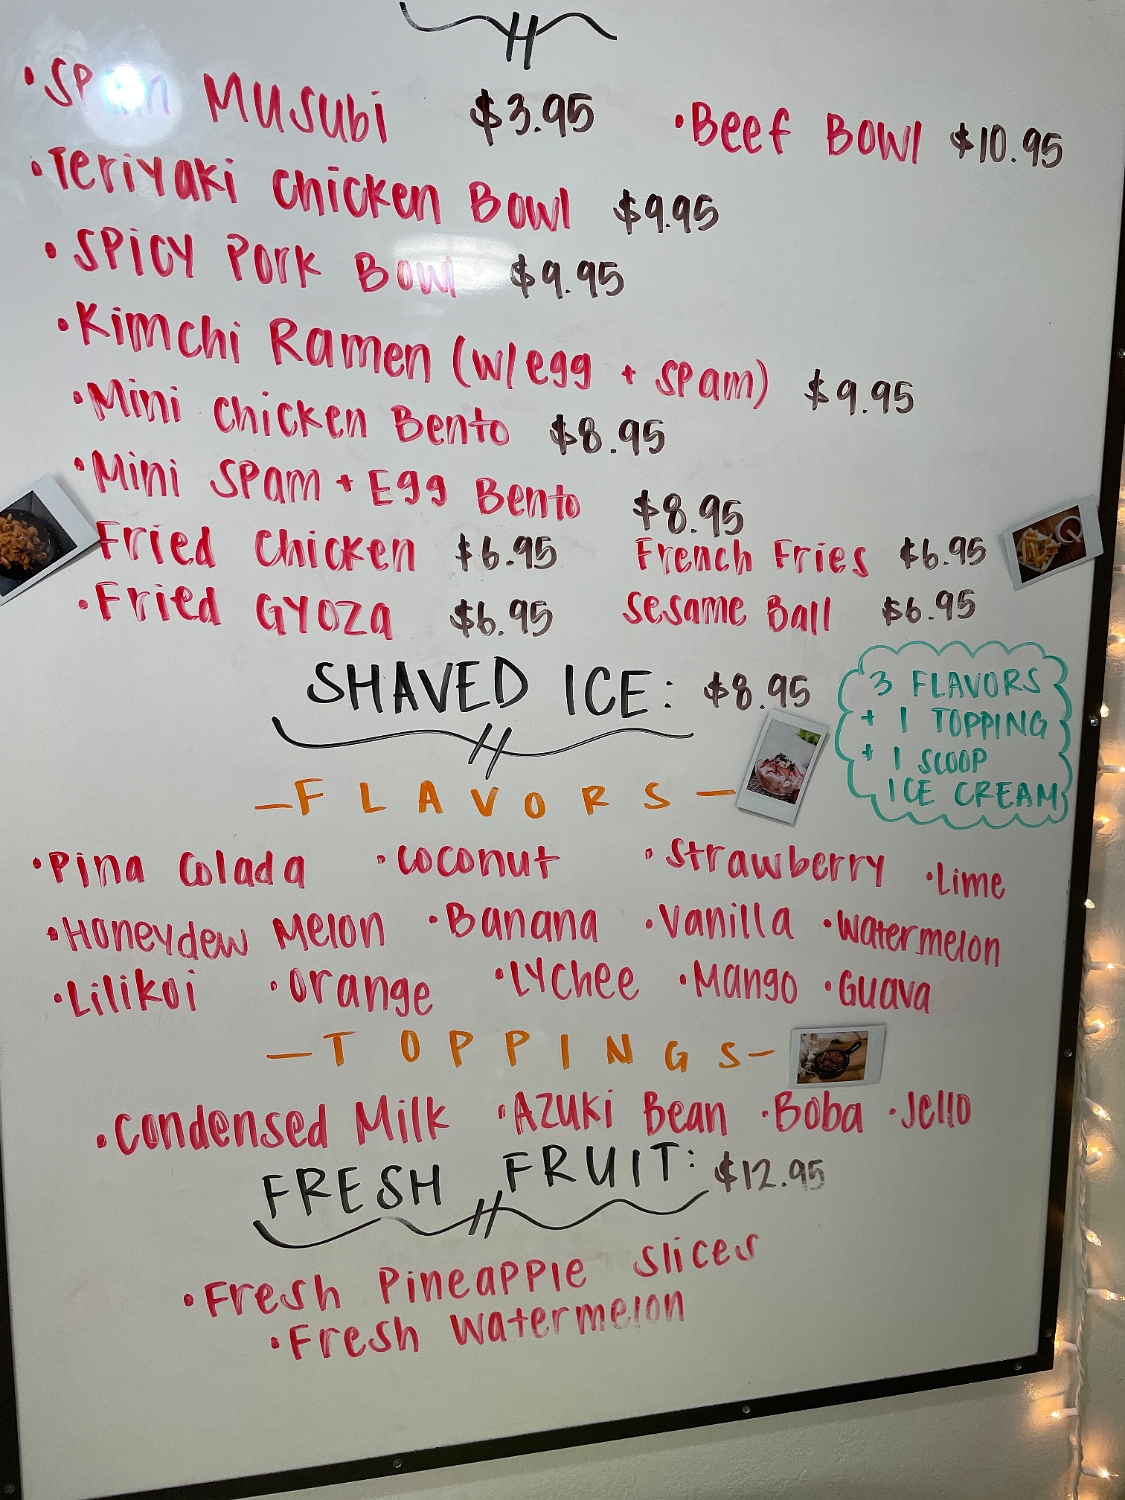 •Spam Musubi $3.95 •Beef Bowl $10.95
•Teriyaki Chicken Bowl $9.95
•Spicy Pork Bowl $9.95
•Kimchi Ramen (w/egg + spam) $9.95
•Mini Chicken Bento $8.95
•Mini Spam + Egg Bento $8.95
Fried Chicken $6.95 French Fries $6.95
•Fried Gyoza $6.95 Sesame Ball $6.95
SHAVED ICE: $8.95
3 FLAVORS
+ 1 TOPPING
+ 1 SCOOP
ICE CREAM
—FLAVORS—
•Pina Colada •Coconut •Strawberry •Lime
•Honeydew Melon •Banana •Vanilla •Watermelon
•Lilikoi •Orange •Lychee •Mango •Guava
—TOPPINGS—
•Condensed Milk •Azuki Bean •Boba •Jello
FRESH FRUIT: $12.95
•Fresh Pineapple Slices
•Fresh Watermelon